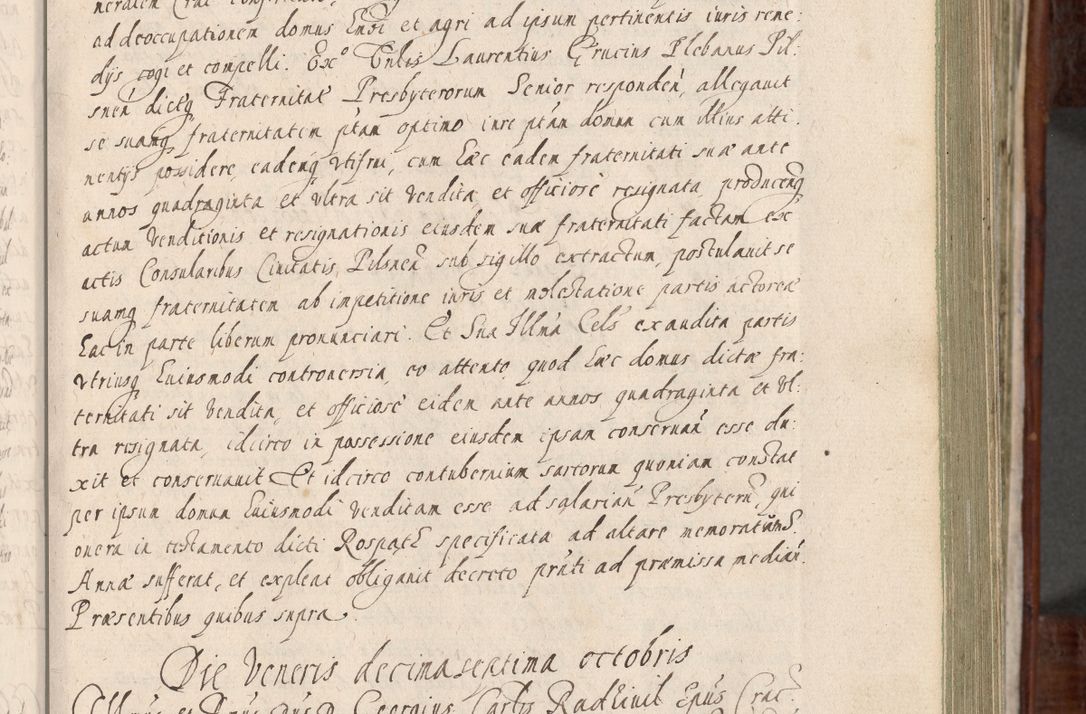 neralem Crac
ad deoccupationem domus Eandē et agri ad ipsum pertinentis iuris reme:
dijs cogi et compelli. Ex° Vnlrs Laurentius Crucius Plebanus Pil:
snen dictęq Fraternitat Presbyterorum Senior responden, allegauit
se suamq fraternitatem ptam optimo iure ptan domum cum illius atti.
nentijs possidere, eademq vtifrui, cum Eac eadem fraternitati suæ ante
annos quadraginta et vltra sit vendita, et officiose resignata producenq
actum venditionis et resignationis eiusdem suæ fraternitati factam ex
actis Consularibus Ciuitatis Pilsnen sub sigillo extractum, postulauit se
suamq fraternitatem ab impetitione iuris et molestatione partis actoreæ
Eac in parte liberum pronunciari. Et Sua Illma Cels exaudita partis
vtriusq Euiusmodi controuersia, eo attento quod Eæc domus dictæ fra:
ternitati sit vendita, et officiose eidem ante annos quadraginta et vl:
tra resignata, idcirco in possessione eiusdem ipsam conseruan esse du:
xit et conseruauit Et idcirco contubernium sartorum quoniam constat
per ipsum domum Euiusmodi venditam esse ad salarian Presbytern, qui
onera in testamento dicti Rospatz specificata ad altare memoratum S.
Annæ sufferat, et expleat obligauit decreto prnti ad præmissa median.
Præsentibus quibus supra.
Die Veneris decima septima octobris
Georgius Carlis Radziuil Epus Crac.